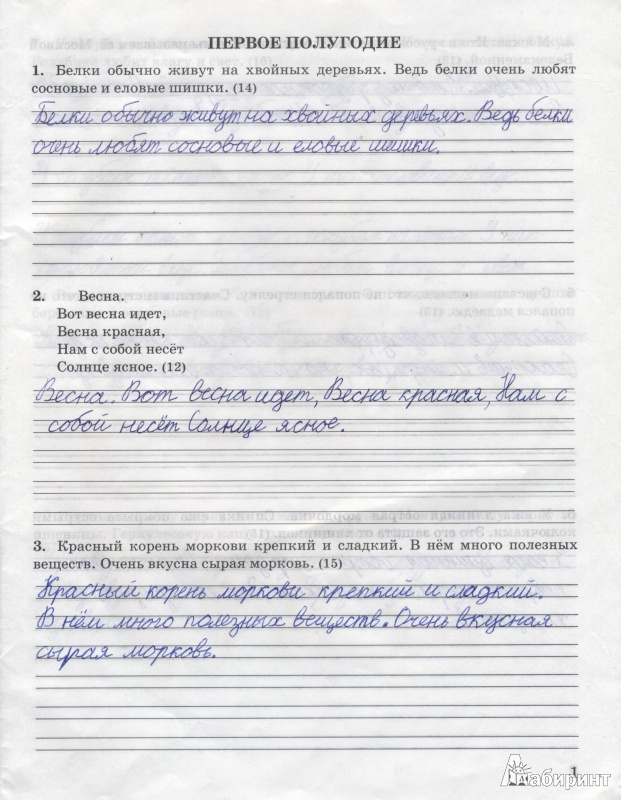 ПЕРВОЕ ПОЛУГОДИЕ
1. Белки обычно живут на хвойных деревьях. Ведь белки очень любят
сосновые и еловые шишки. (14)
Белки обычно живут на хвойных деревьях. Ведь белки
очень любят сосновые и еловые шишки.
2. Весна.
Вот весна идет,
Весна красная,
Нам с собой несёт
Солнце ясное. (12)
Весна. Вот весна идет, Весна красная, Нам с
собой несёт Солнце ясное.
3. Красный корень моркови крепкий и сладкий. В нём много полезных
веществ. Очень вкусна сырая морковь. (15)
Красный корень моркови крепкий и сладкий.
В нём много полезных веществ. Очень вкусная
сырая морковь.
1
Лабиринт